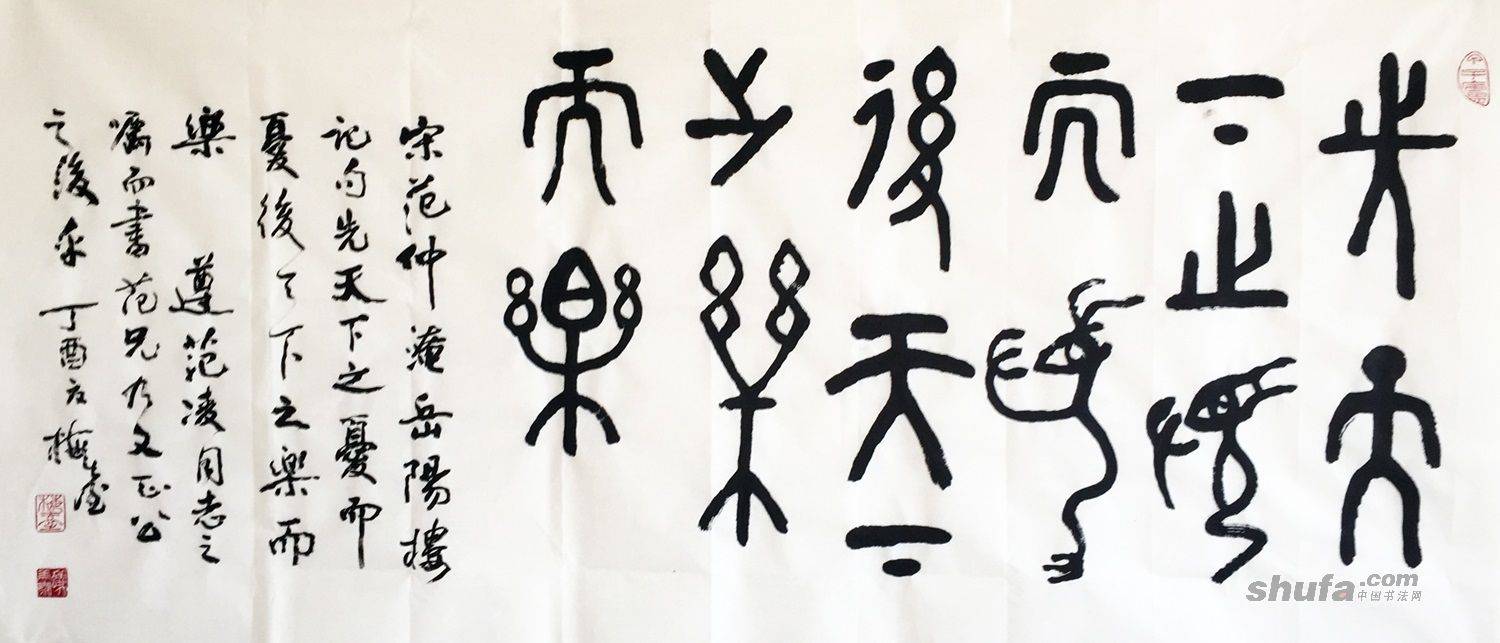 先天
下之憂
而憂
後天下
之樂
而樂
宋范仲淹岳陽樓
記句先天下之憂而
憂後天下之樂而
樂 遵范凌同志之
囑而書范兄乃文正公
之後 丁酉 梅
shufa.com
中国书法网